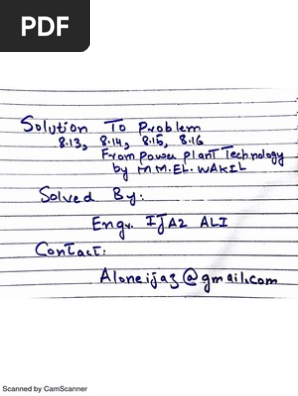 PDF
Solution To Problem
8.13, 8.14, 8.15, 8.16
From power plant Technology
by M.M.EL.WAKIL
Solved By:
Engr. IJAZ ALI
Contact:
Aloneijaz@gmail.com
Scanned by CamScanner